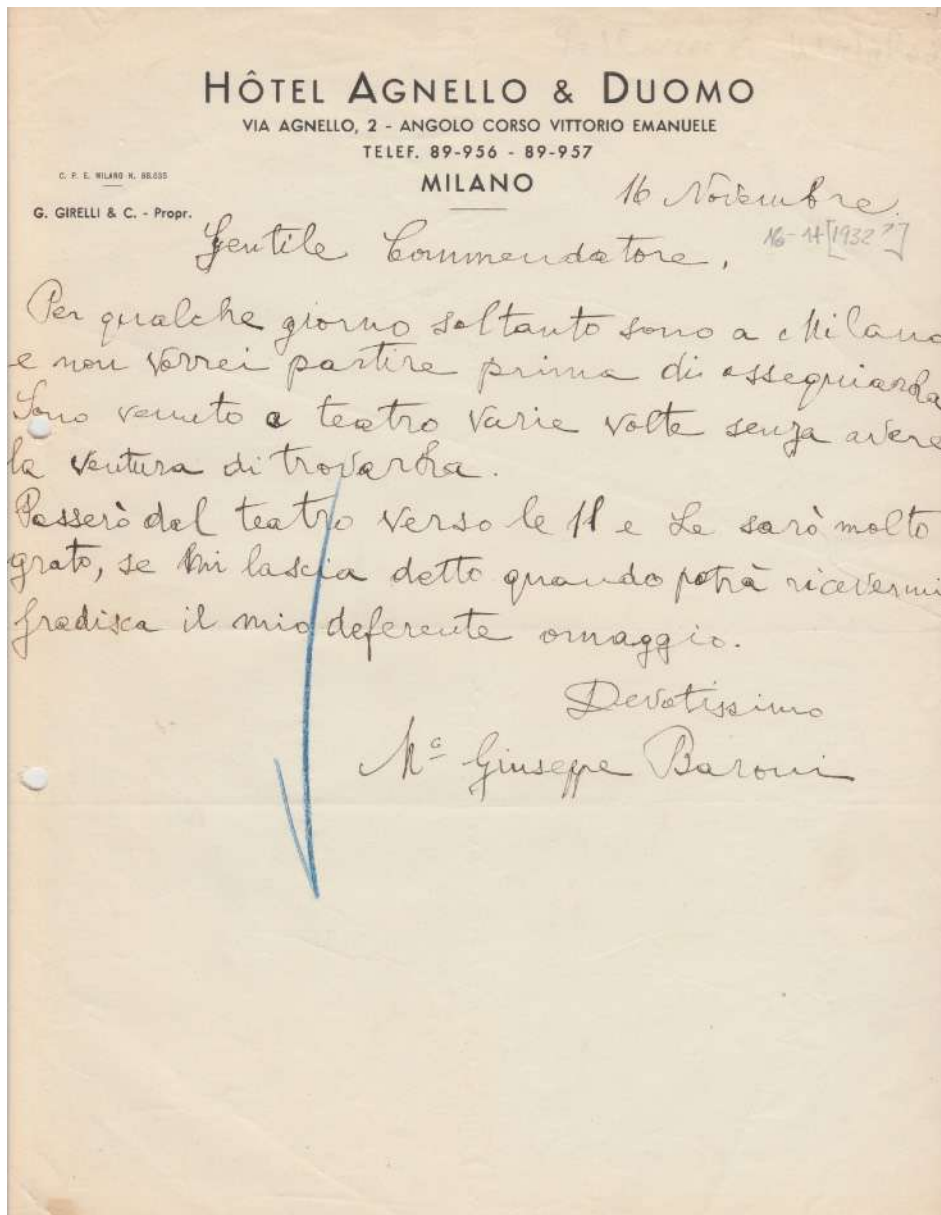 HÔTEL AGNELLO & DUOMO
VIA AGNELLO, 2 - ANGOLO CORSO VITTORIO EMANUELE
TELEF. 89-956 - 89-957
C. P. E. MILANO N.
MILANO
16 Novembre
G. GIRELLI & C. - Propr.
16-11 [1932?]
Gentile Commendatore,
Per qualche giorno soltanto sono a Milano
e non vorrei partire prima di ossequiarla
Sono venuto a teatro varie volte senza avere
la ventura di trovarla.
Passerò dal teatro verso le 11 e Le sarò molto
grato, se mi lascia detto quando potrà ricevermi
Gradisca il mio deferente omaggio.
Devotissimo
Mº Giuseppe Baroni